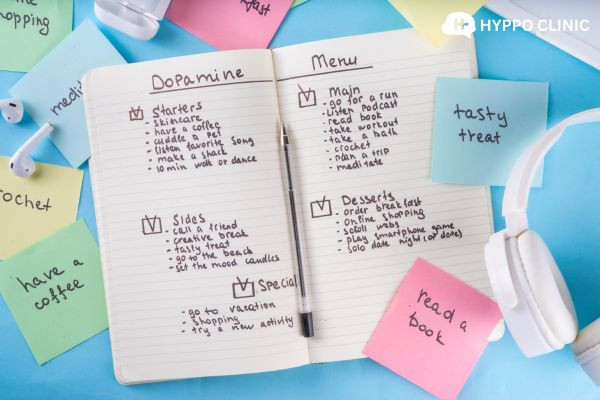 the
shopping
fast
HYPPO CLINIC
medi
crochet
have a
coffee
Dopamine
Menu
Starters
- skincare
- have a coffee
- cuddle a pet
- listen favorite song
- make a snack
- 10 min walk or dance
Sides
- call a friend
- creative break
- tasty treat
- go to the beach
- set the mood candles
Special
- go to vacation
- shopping
- try a new activity
Main
- go for a run
- listen Podcast
- read book
- take workout
- take a bath
- crochet
- plan a trip
- meditate
Desserts
- order breakfast
- online shopping
- scroll webs
- play smartphone game
- solo date night (or date)
tasty
treat
read a
book